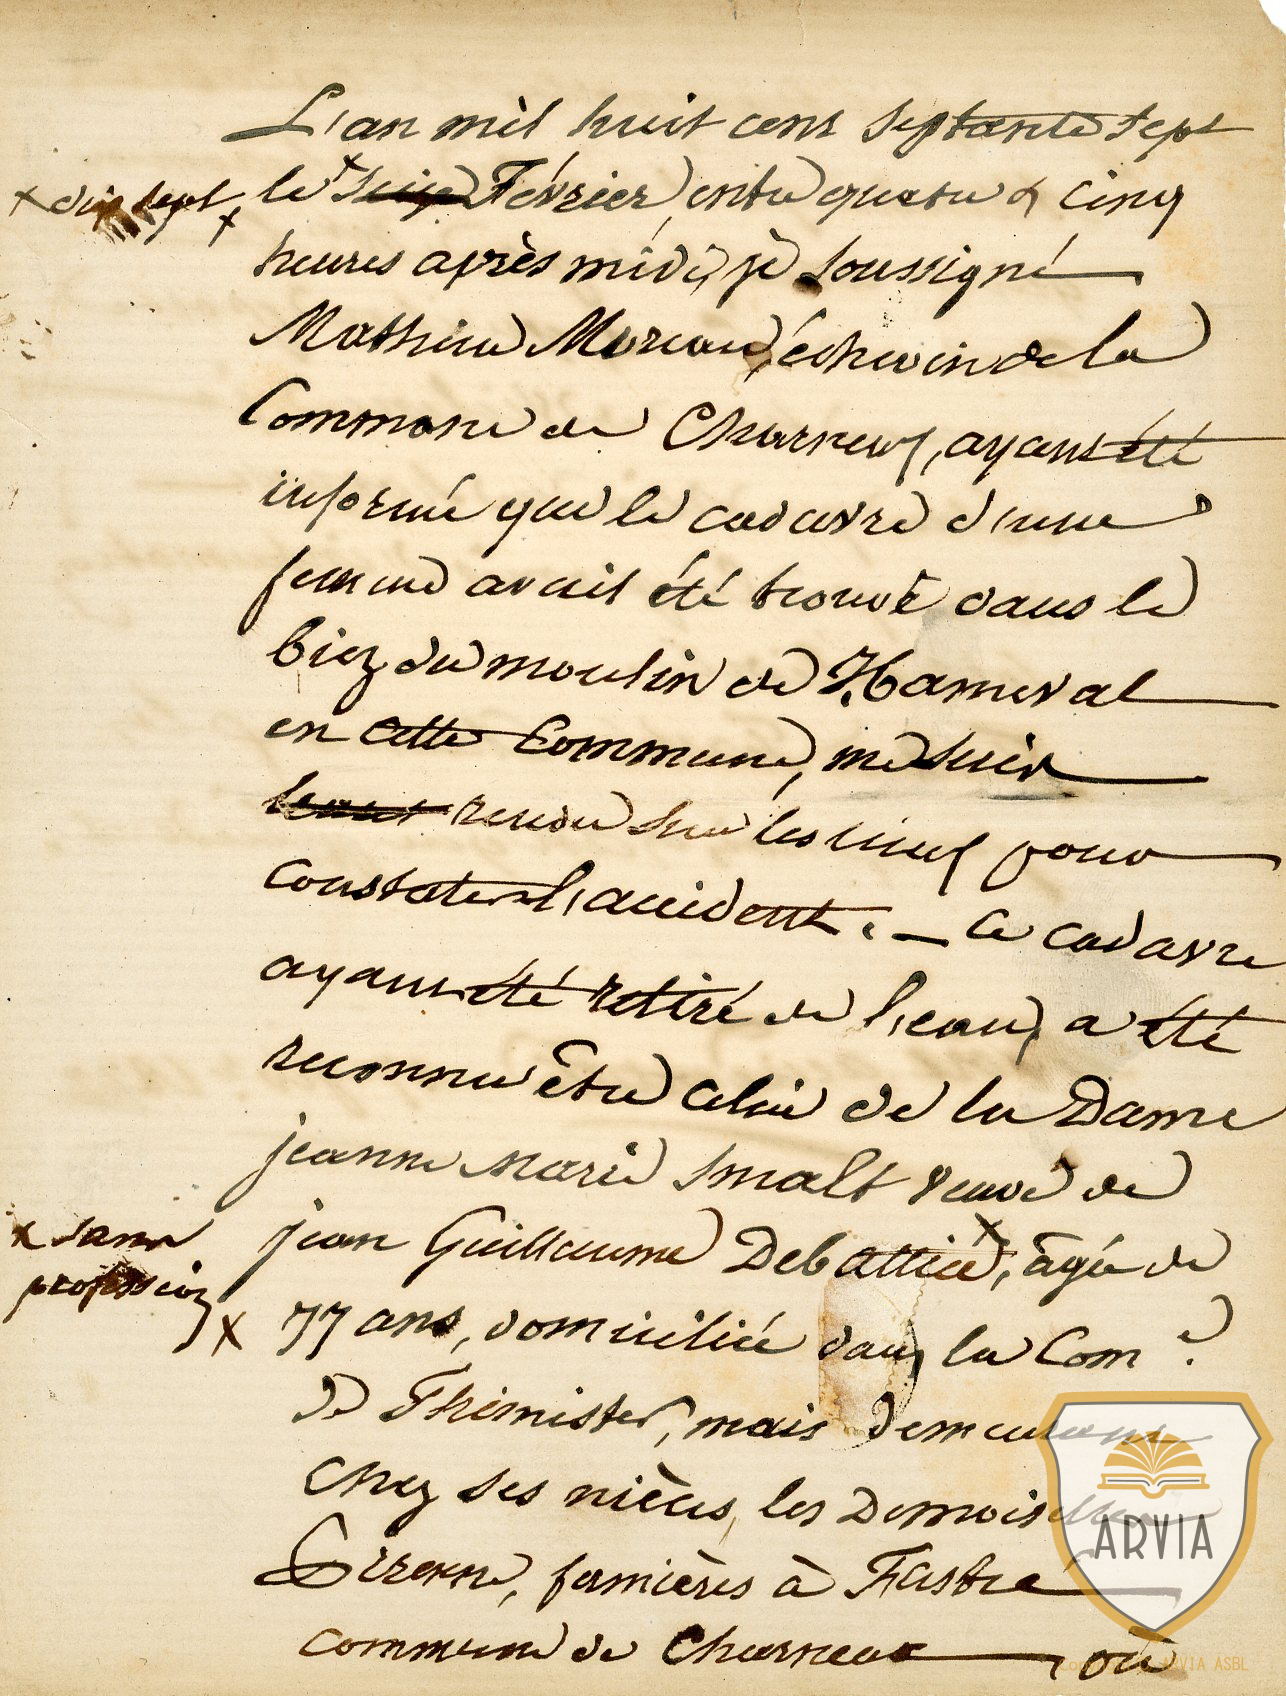 L'an mil huit cent septante sept
x dix sept x
le x seize Février, entre quatre & cinq
heures après midi, je soussigné
Mathieu Moreau, échevin de la
Commune de Charneux, ayant été
informé que le cadavre d'une
femme avait été trouvé dans le
biez du moulin de Hameval
en cette Commune, me suis
rendu sur les lieux pour
constater l'accident. — Ce cadavre
ayant été retiré de l'eau, a été
reconnu être celui de la Dame
jeanne Marie Smalt veuve de
x sans
profession x
jean Guillaume Debattice x, âgée de
77 ans, domiciliée dans la Com.e
de Thimister, mais demeurant
chez ses nièces, les Demoiselles
fermières à Fastré
commune de Charneux où
ARVIA
ARVIA ASBL